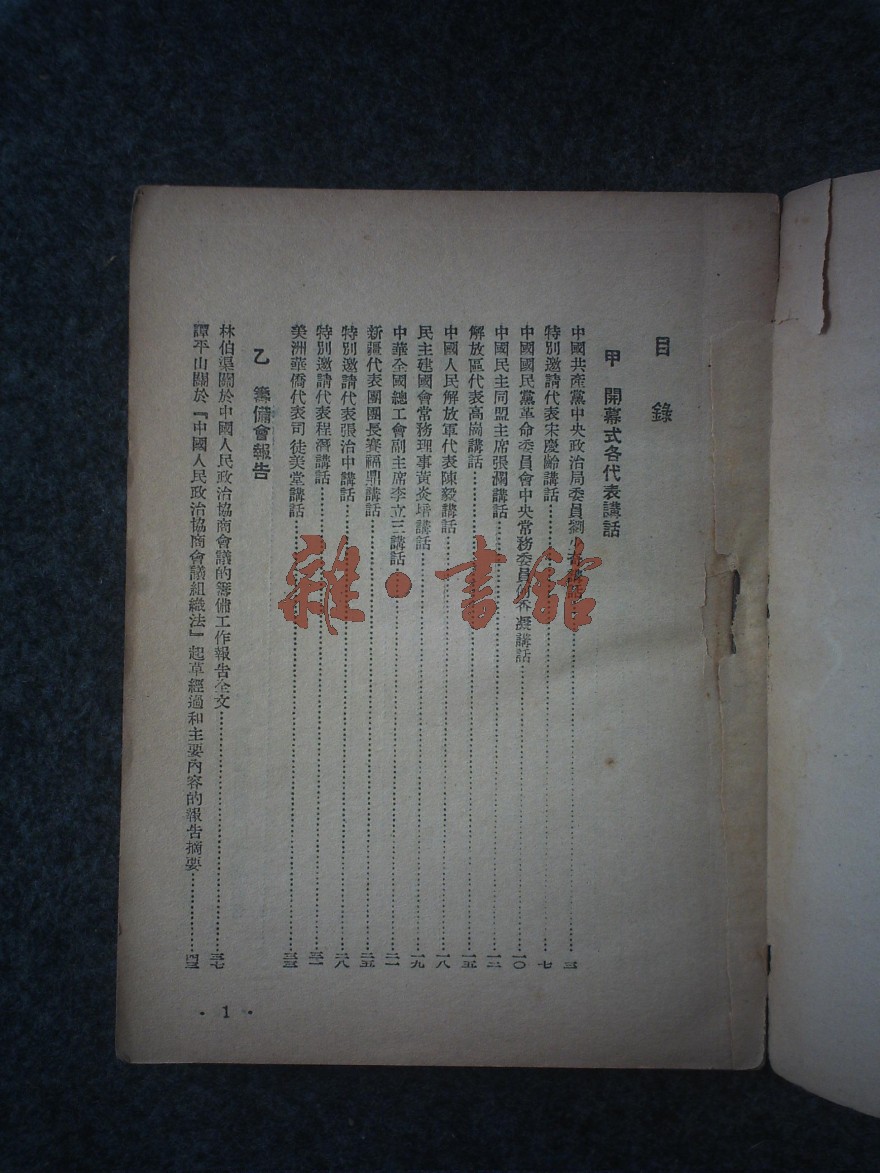 目錄
甲 開幕式各代表講話
中國共產黨中央政治局委員劉少奇講話……三
特別邀請代表宋慶齡講話……七
中國國民黨革命委員會中央常務委員何香凝講話……一〇
中國民主同盟主席張瀾講話……一二
解放區代表高崗講話……一五
中國人民解放軍代表陳毅講話……一八
民主建國會常務理事黃炎培講話……一九
中華全國總工會副主席李立三講話……二一
新疆代表團團長賽福鼎講話……二五
特別邀請代表張治中講話……二八
特別邀請代表程潛講話……三一
美洲華僑代表司徒美堂講話……三三
乙 籌備會報告
林伯渠關於中國人民政治協商會議的籌備工作報告全文……三七
譚平山關於『中國人民政治協商會議組織法』起草經過和主要內容的報告摘要……四三
· 1 ·
雜·書館